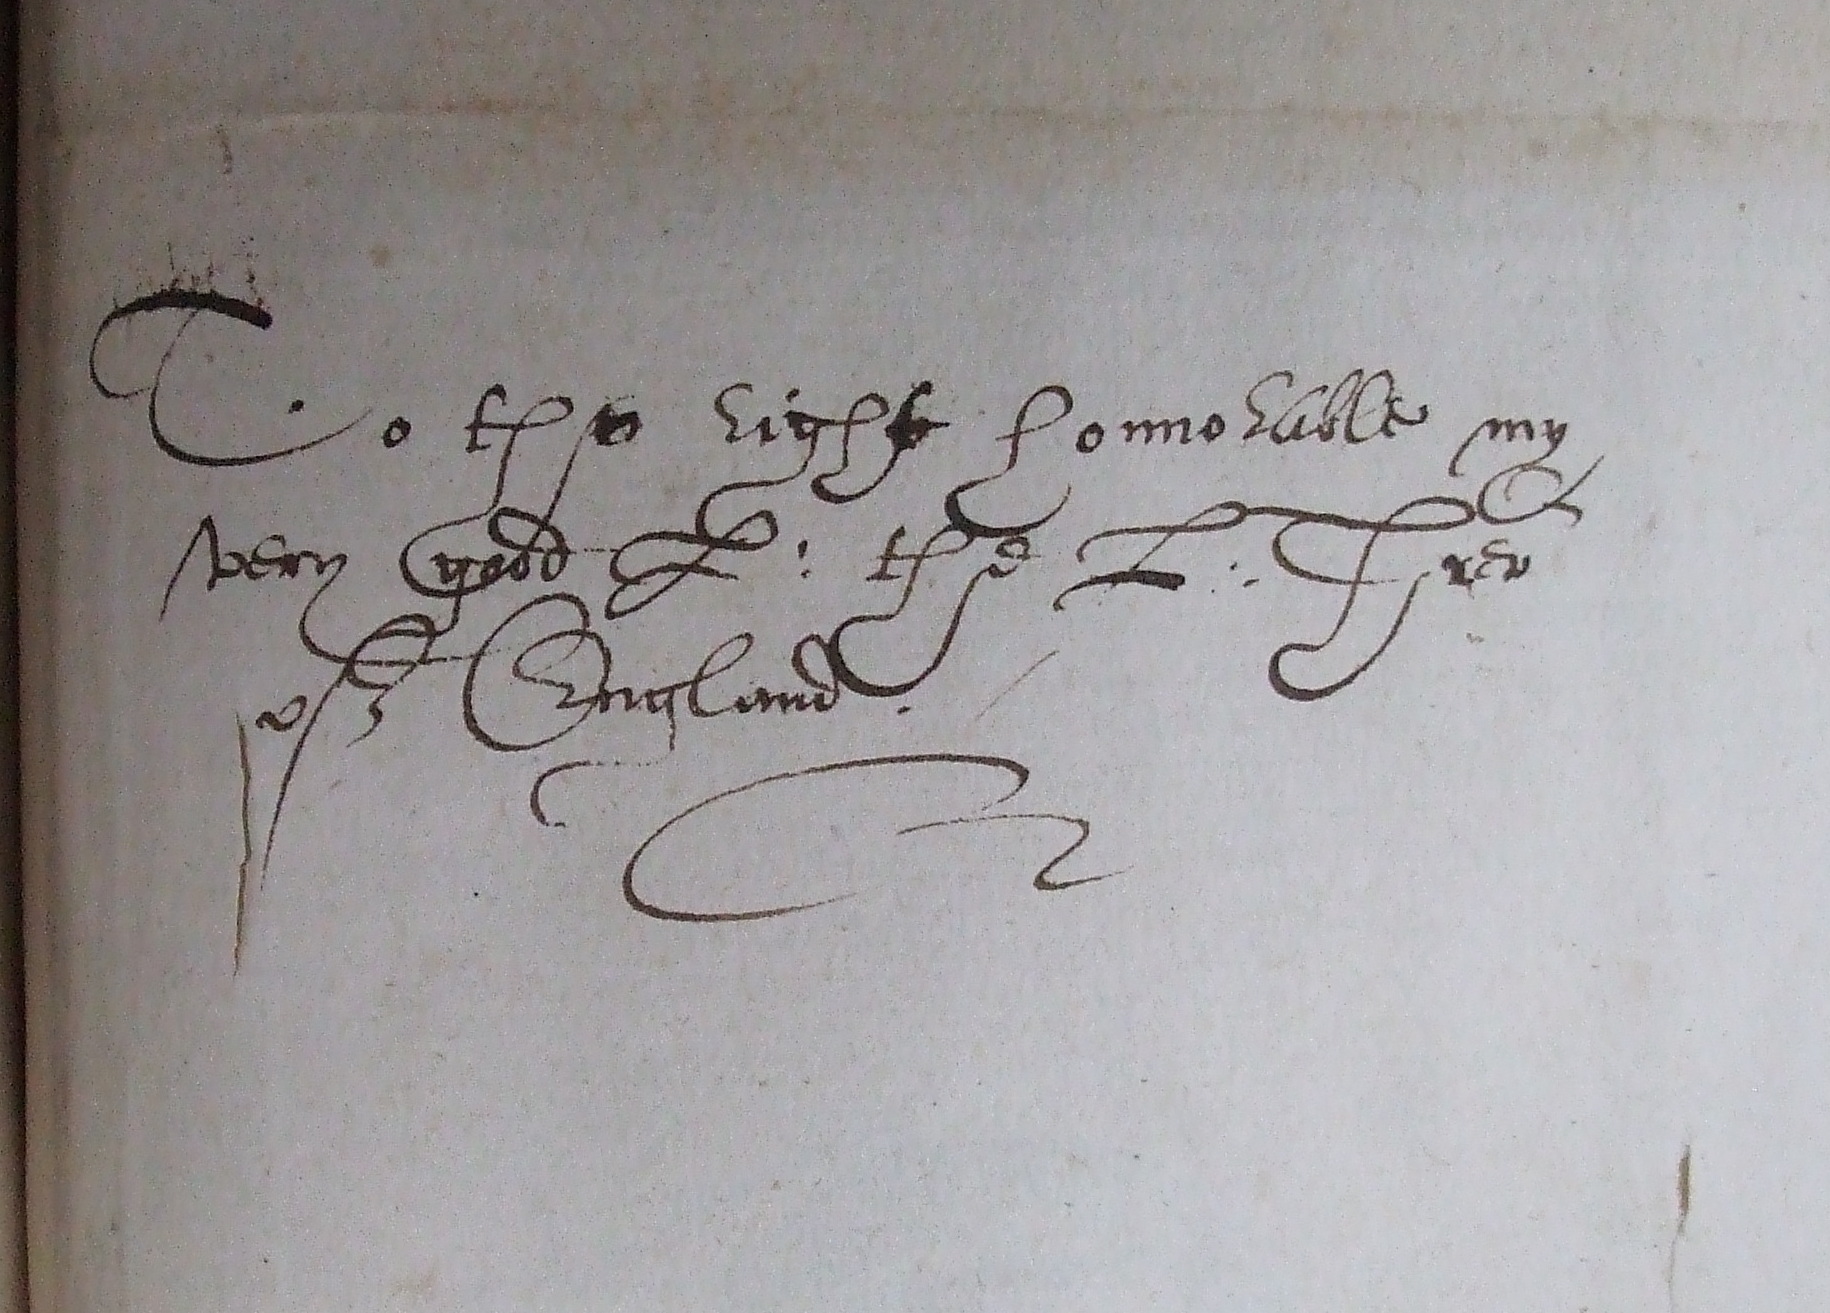 To the right honnorable my
very good L: the L: Threr
of England.